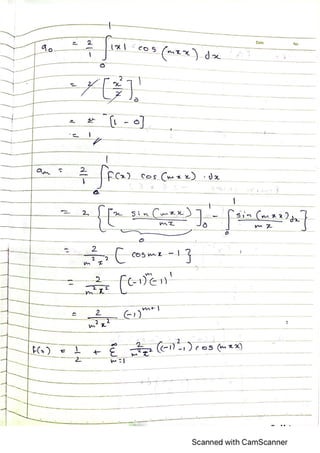 Date No.
a₀ = 2/1 ∫₀¹ |x| cos (mπx) dx
= 2 [x²/2]₀¹
= [1 - 0]
= 1
aₘ = 2/1 ∫₀¹ f(x) cos (mπx) · dx
= 2 { [x sin (mπx)/mπ]₀¹ - ∫₀¹ sin (mπx)/mπ dx }
= 2/m²π² [ cos mπ - 1 }
= 2/m²π² [(-1)ᵐ(-1)¹
= 2/m²π² (-1)ᵐ⁺¹
f(x) = 1/2 + Σ_{m=1}^∞ 2/m²π² ((-1)²-1) cos (mπx)
Scanned with CamScanner